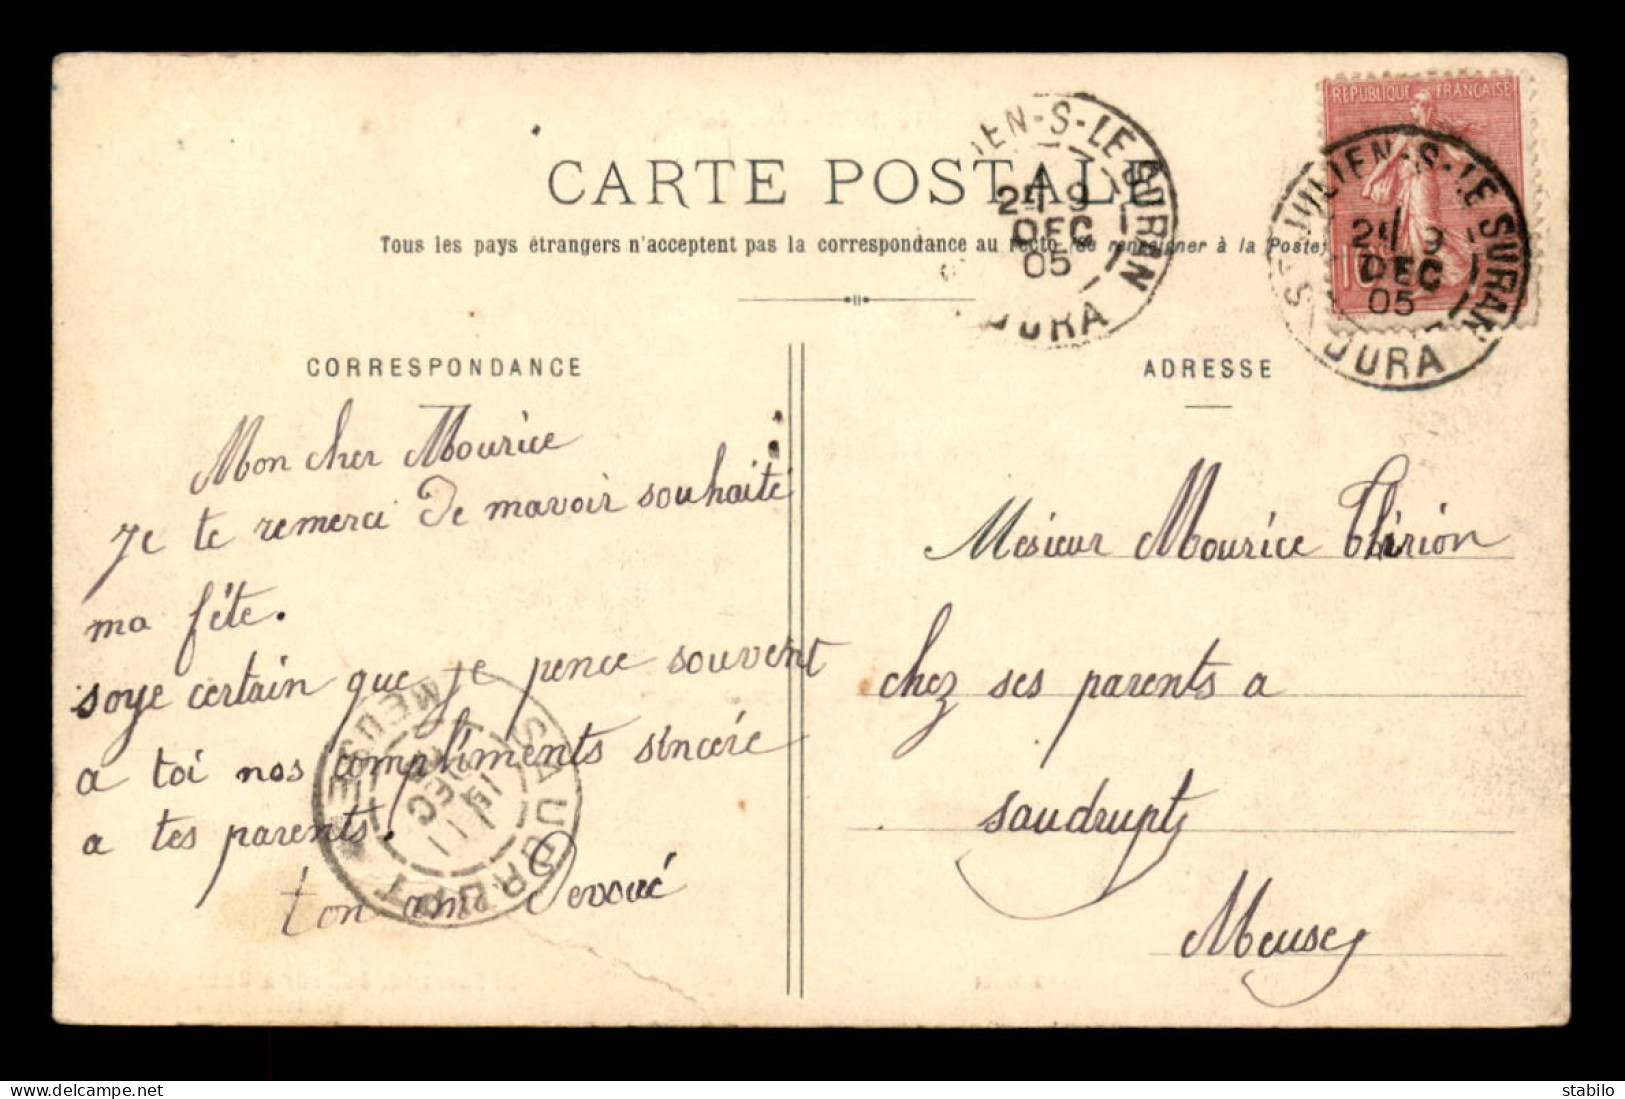 CARTE POSTALE
Tous les pays étrangers n'acceptent pas la correspondance au recto (se renseigner à la Poste)
CORRESPONDANCE
Mon cher Mourice
Je te remerci de mavoir souhaité
ma fête.
soye certain que je pence souvent
a toi nos compliments sincére
a tes parents.
ton ami Devoué
ADRESSE
Mesieur Mourice Thirion
chez ses parents a
saudrupt
Meuse
REPUBLIQUE FRANÇAISE
10
ST JULIEN-S-LE SURAN
9
DEC
05
JURA
IEN-S-LE SURAN
9
DEC
05
JURA
SAUDRUPT
MEUSE
11
DEC
stabilo
www.delcampe.net